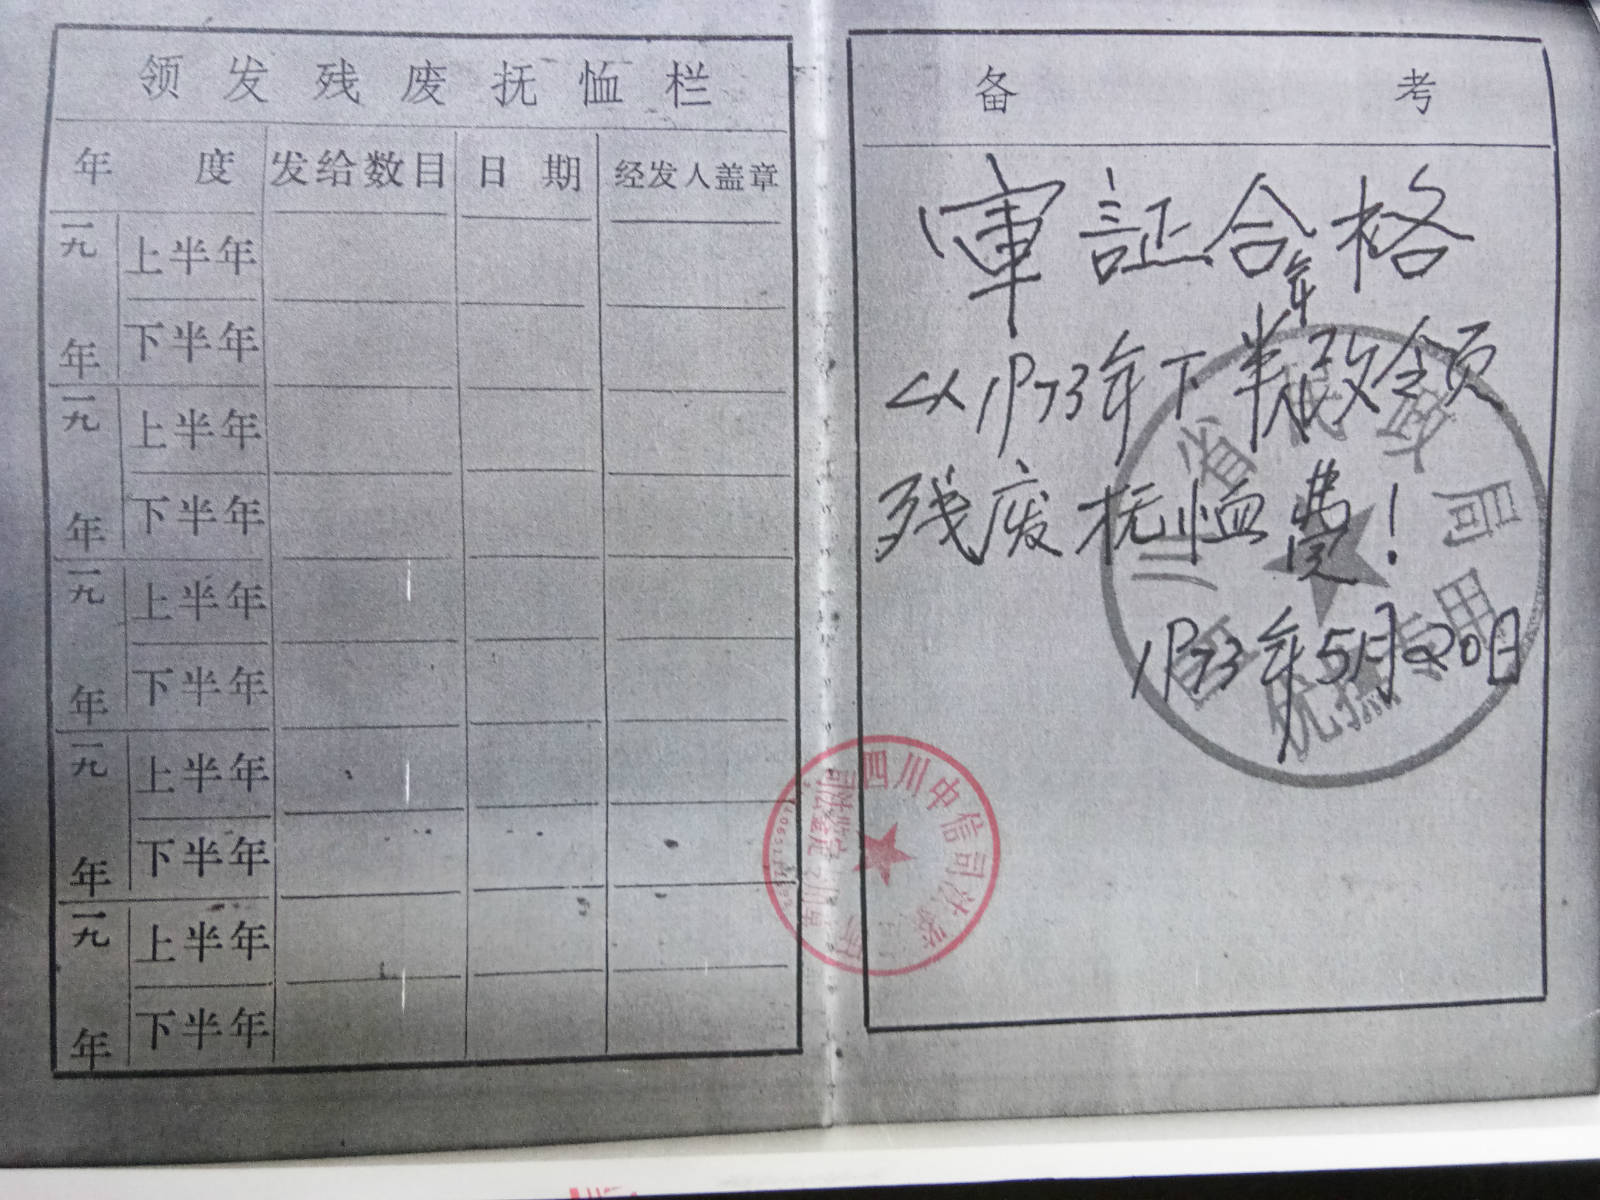 领发残废抚恤栏
年度 发给数目 日期 经发人盖章
一九 年 上半年
下半年
一九 年 上半年
下半年
一九 年 上半年
下半年
一九 年 上半年
下半年
一九 年 上半年
下半年
备考
审証合格
从1973年下半年改领
残废抚恤费!
1973年5月20日
四川省民政局
优抚专用
四川中信司法鉴
司法鉴定